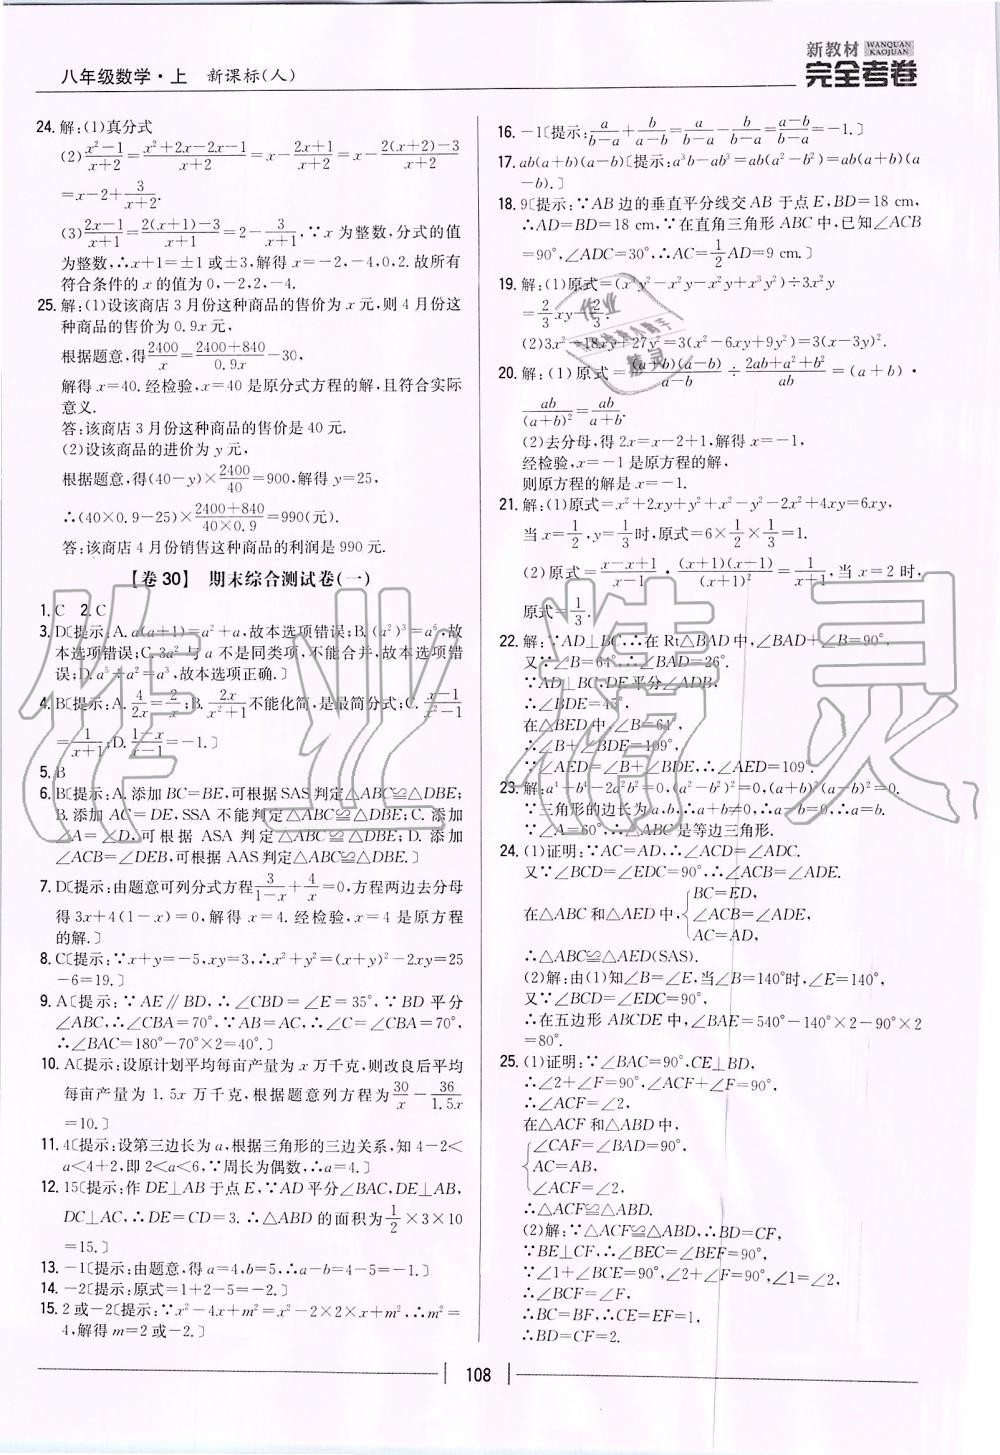 八年级数学·上 新课标(人)
新教材 WANQUAN KAOJUAN
完全考卷
24. 解:(1)真分式
(2)\frac{x²-1}{x+2}=\frac{x²+2x-2x-1}{x+2}=x-\frac{2x+1}{x+2}=x-\frac{2(x+2)-3}{x+2}
=x-2+\frac{3}{x+2}.
(3)\frac{2x-1}{x+1}=\frac{2(x+1)-3}{x+1}=2-\frac{3}{x+1},∵x 为整数,分式的值
为整数,∴x+1=±1 或±3,解得 x=-2,-4,0,2. 故所有
符合条件的 x 的值为 0,-2,2,-4.
25. 解:(1)设该商店 3 月份这种商品的售价为 x 元,则 4 月份这
种商品的售价为 0.9x 元,
根据题意,得\frac{2400}{x}=\frac{2400+840}{0.9x}-30,
解得 x=40. 经检验,x=40 是原分式方程的解,且符合实际
意义.
答:该商店 3 月份这种商品的售价是 40 元.
(2)设该商品的进价为 y 元,
根据题意,得(40-y)×\frac{2400}{40}=900,解得 y=25,
∴(40×0.9-25)×\frac{2400+840}{40×0.9}=990(元).
答:该商店 4 月份销售这种商品的利润是 990 元.
【卷 30】 期末综合测试卷(一)
1. C 2. C
3. D〔提示:A. a(a+1)=a²+a,故本选项错误;B. (a²)³=a⁶,故
本选项错误;C. 3a²与 a 不是同类项,不能合并,故本选项错
误;D. a⁵÷a²=a³,故本选项正确.〕
4. B〔提示:A. \frac{4}{2x}=\frac{2}{x};B. \frac{2x}{x²+1}不能化简,是最简分式;C. \frac{x-1}{x²-1}
=\frac{1}{x+1};D. \frac{1-x}{x-1}=-1.〕
5. B
6. B〔提示:A. 添加 BC=BE,可根据 SAS 判定△ABC≌△DBE;
B. 添加 AC=DE,SSA 不能判定△ABC≌△DBE;C. 添加
∠A=∠D,可根据 ASA 判定△ABC≌△DBE;D. 添加
∠ACB=∠DEB,可根据 AAS 判定△ABC≌△DBE.〕
7. D〔提示:由题意可列分式方程\frac{3}{1-x}+\frac{4}{x}=0,方程两边去分母
得 3x+4(1-x)=0,解得 x=4. 经检验,x=4 是原方程
的解.〕
8. C〔提示:∵x+y=-5,xy=3,∴x²+y²=(x+y)²-2xy=25
-6=19.〕
9. A〔提示:∵AE∥BD,∴∠CBD=∠E=35°,∵BD 平分
∠ABC,∴∠CBA=70°,∵AB=AC,∴∠C=∠CBA=70°,
∴∠BAC=180°-70°×2=40°.〕
10. A〔提示:设原计划平均每亩产量为 x 万千克,则改良后平均
每亩产量为 1.5x 万千克,根据题意列方程为\frac{30}{x}-\frac{36}{1.5x}
=10.〕
11. 4〔提示:设第三边长为 a,根据三角形的三边关系,知 4-2<
a<4+2,即 2<a<6,∵周长为偶数,∴a=4.〕
12. 15〔提示:作 DE⊥AB 于点 E,∵AD 平分∠BAC,DE⊥AB,
DC⊥AC,∴DE=CD=3. ∴△ABD 的面积为\frac{1}{2}×3×10
=15.〕
13. -1〔提示:由题意,得 a=4,b=5,∴a-b=4-5=-1.〕
14. -2〔提示:原式=1+2-5=-2.〕
15. 2 或-2〔提示:∵x²-4x+m²=x²-2×2×x+m²,∴m²=
4,解得 m=2 或-2.〕
16. -1〔提示:\frac{a}{b-a}+\frac{b}{a-b}=\frac{a}{b-a}-\frac{b}{b-a}=\frac{a-b}{b-a}=-1.〕
17. ab(a+b)(a-b)〔提示:a³b-ab³=ab(a²-b²)=ab(a+b)(a
-b).〕
18. 9〔提示:∵AB 边的垂直平分线交 AB 于点 E,BD=18 cm,
∴AD=BD=18 cm,∵在直角三角形 ABC 中,已知∠ACB
=90°,∠ADC=30°,∴AC=\frac{1}{2}AD=9 cm.〕
19. 解:(1)原式=(x³y²-x²y-x²y+x³y²)÷3x²y
=\frac{2}{3}xy-\frac{2}{3}.
(2)3x²-18xy+27y²=3(x²-6xy+9y²)=3(x-3y)².
20. 解:(1)原式=\frac{(a+b)(a-b)}{a-b}÷\frac{2ab+a²+b²}{ab}=(a+b)·
\frac{ab}{(a+b)²}=\frac{ab}{a+b}.
(2)去分母,得 2x=x-2+1,解得 x=-1,
经检验,x=-1 是原方程的解,
则原方程的解是 x=-1.
21. 解:(1)原式=x²+2xy+y²+x²-y²-2x²+4xy=6xy,
当 x=\frac{1}{2},y=\frac{1}{3}时,原式=6×\frac{1}{2}×\frac{1}{3}=1.
(2)原式=\frac{x-x+1}{x-1}·\frac{(x+1)(x-1)}{(x+1)²}=\frac{1}{x+1},当 x=2 时,
原式=\frac{1}{3}.
22. 解:∵AD⊥BC,∴在 Rt△BAD 中,∠BAD+∠B=90°,
又∵∠B=64°,∴∠BAD=26°.
∵AD⊥BC,DE 平分∠ADB,
∴∠BDE=45°,
在△BED 中,∠B=64°,
∴∠B+∠BDE=109°,
又∵∠AED=∠B+∠BDE,∴∠AED=109°.
23. 解:a⁴+b⁴-2a²b²=0,(a²-b²)²=0,(a+b)²(a-b)²=0.
∵三角形的边长为 a,b,∴a+b≠0,∴a-b=0,∴a=b.
∵∠A=60°,∴△ABC 是等边三角形.
24. (1)证明:∵AC=AD,∴∠ACD=∠ADC.
又∵∠BCD=∠EDC=90°,∴∠ACB=∠ADE.
在△ABC 和△AED 中,{BC=ED,
∠ACB=∠ADE,
AC=AD,
∴△ABC≌△AED(SAS).
(2)解:由(1)知∠B=∠E,当∠B=140°时,∠E=140°,
又∵∠BCD=∠EDC=90°,
∴在五边形 ABCDE 中,∠BAE=540°-140°×2-90°×2
=80°.
25. (1)证明:∵∠BAC=90°,CE⊥BD,
∴∠2+∠F=90°,∠ACF+∠F=90°,
∴∠ACF=∠2,
在△ACF 和△ABD 中,
{∠CAF=∠BAD=90°,
AC=AB,
∠ACF=∠2,
∴△ACF≌△ABD.
(2)解:∵△ACF≌△ABD,∴BD=CF,
∵BE⊥CF,∴∠BEC=∠BEF=90°,
∵∠1+∠BCE=90°,∠2+∠F=90°,∠1=∠2,
∴∠BCF=∠F,
∴BC=BF,∴CE=EF=1,
∴BD=CF=2.
108
作业精灵